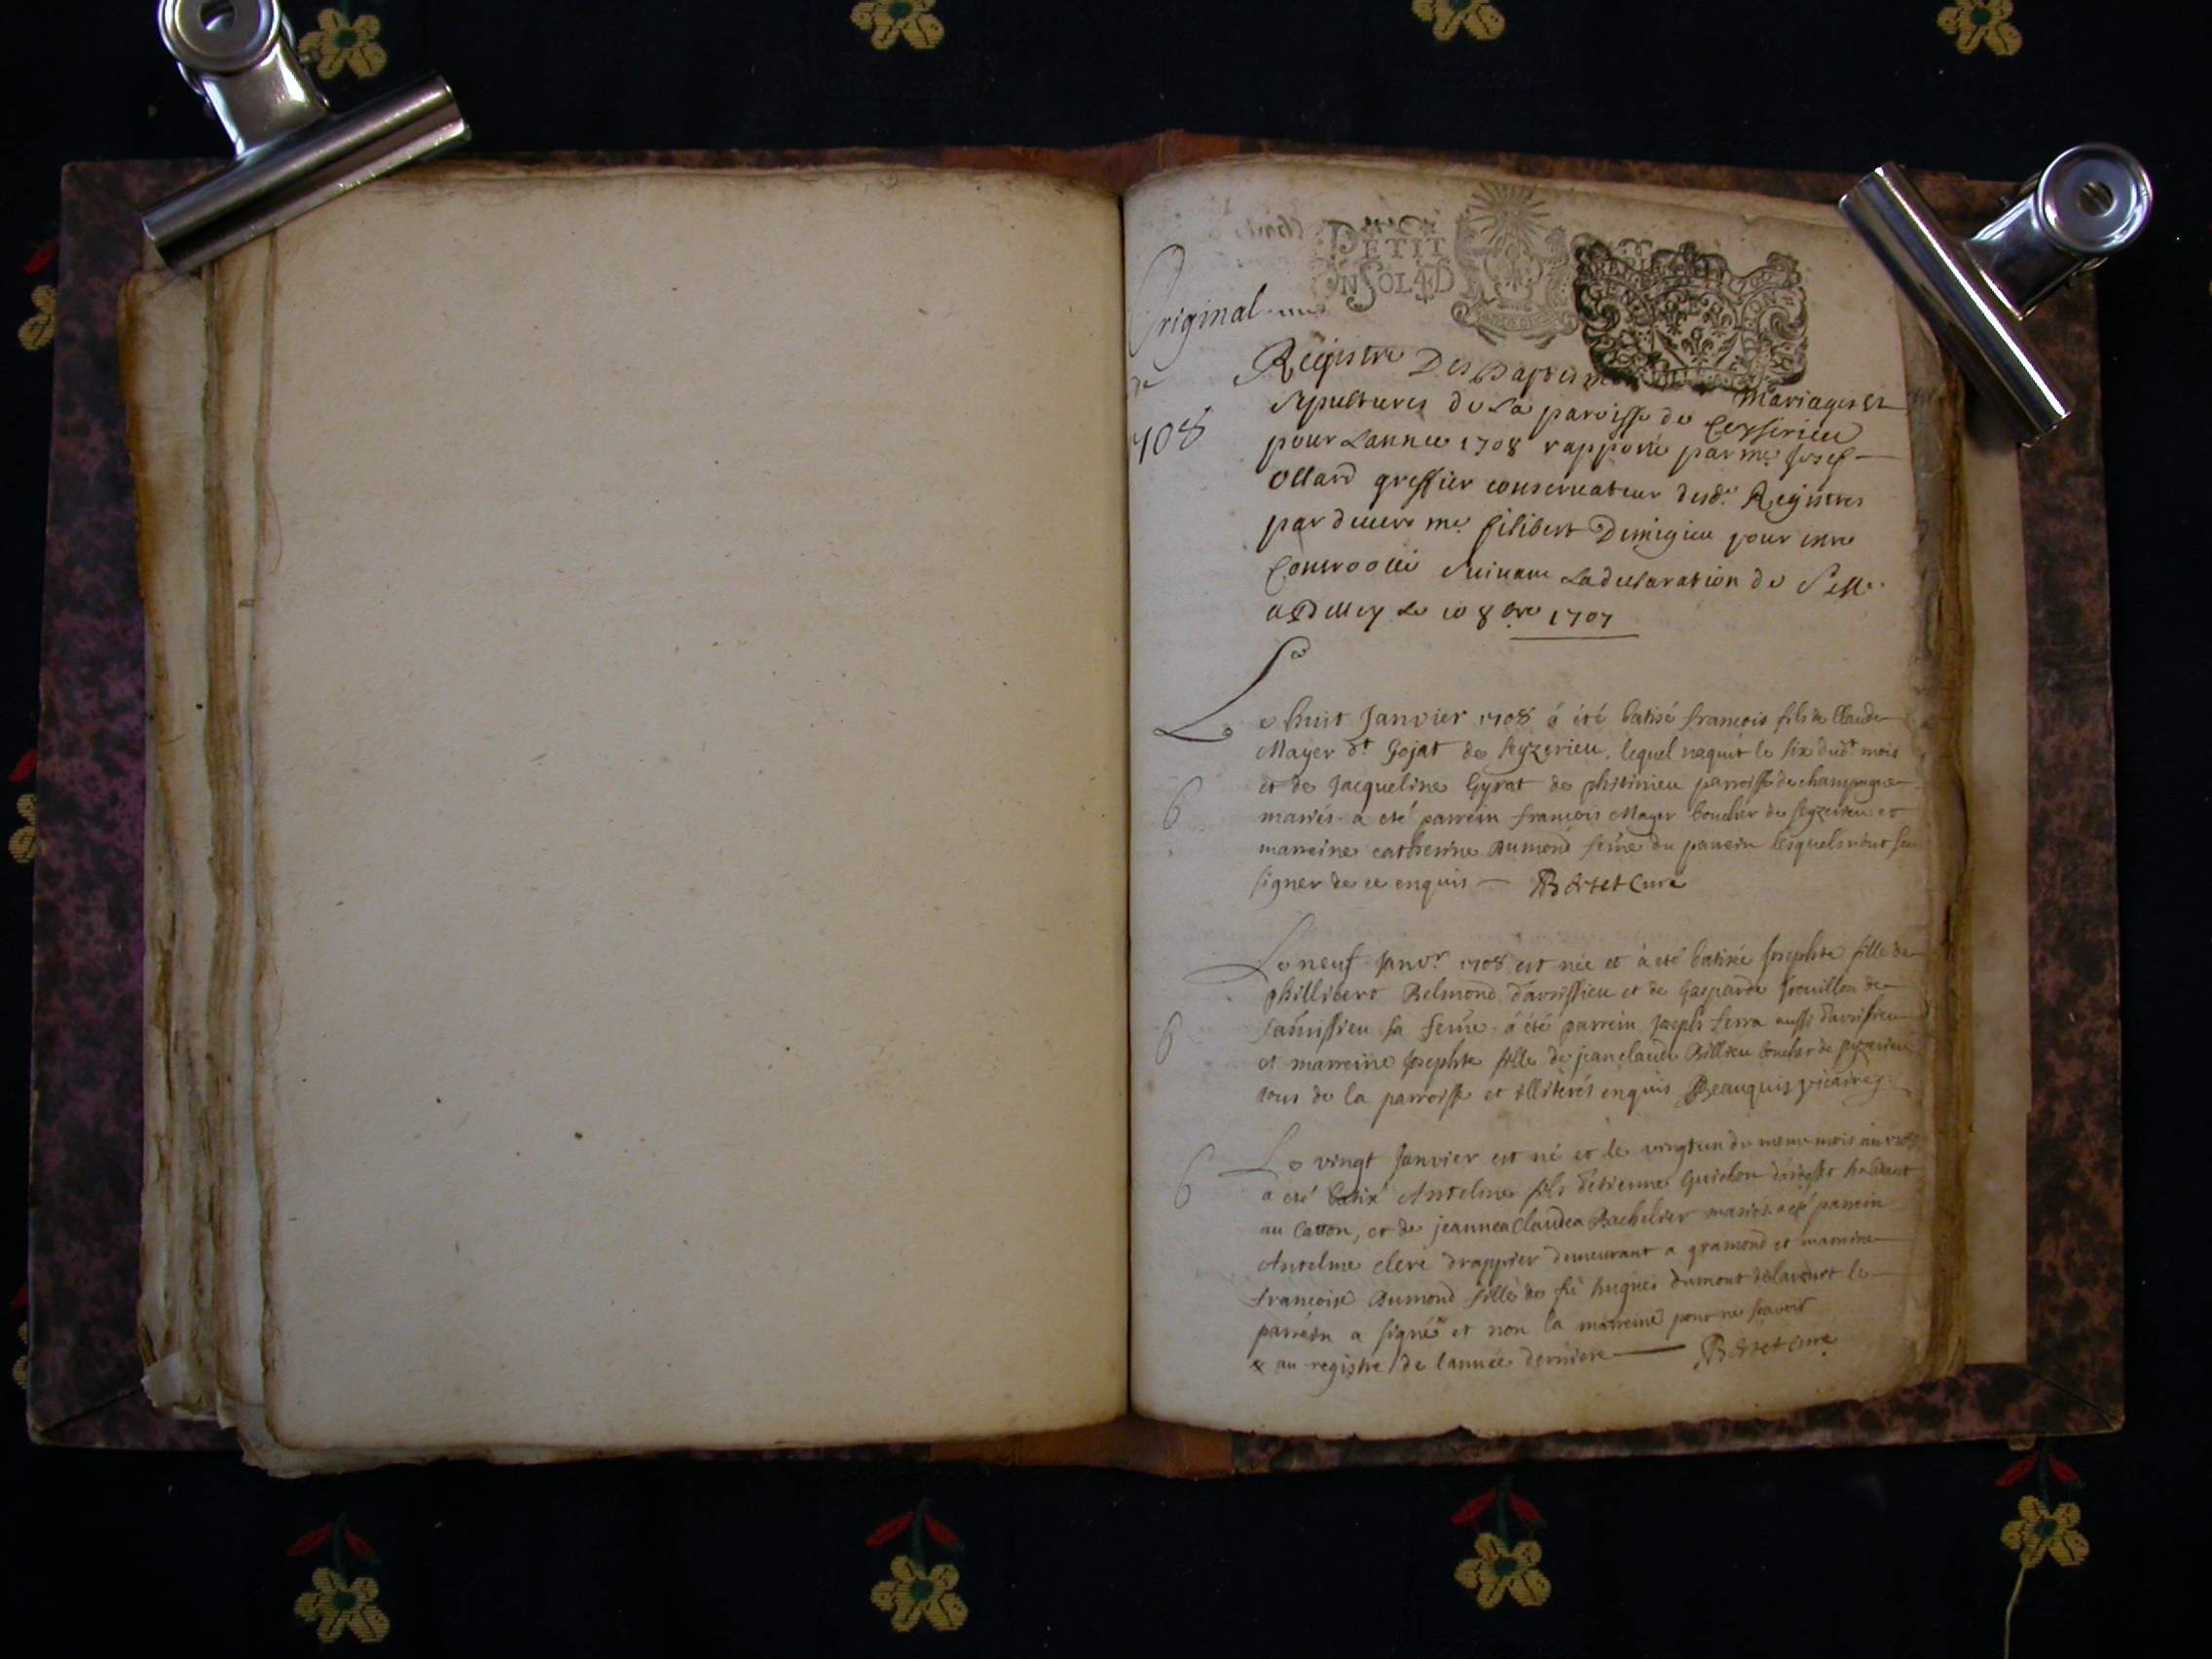 PETIT
Original
de
708
Registre Des Baptesmes Mariages et
Sepultures de La paroisse de Ceyserieu
pour L'annee 1708 rapporté par me Josep
Ollard greffier conservateur desd. Registres
par devers me filibert Demigieu pour estre
Controollé Suivant La declaration de Sa
a Belley Le 10 8bre 1707
Le huit Janvier 1708 á été batisé francois fils de Claude
Mayer dt Gojat de Seyzerieu, lequel naquit le six dudt mois
et de Jacqueline Gyrat de phitinieu parroisse de champagne
6
mariés. a eté parrein francois Mayer boucher de Seyzerieu et
marreine catherine Dumond feme du parrein lesquels n'ont seu
signer de ce enquis — Bertet Curé
Le neuf Janvr 1708 est née et à eté batisée Josephte fille de
phillibert Belmond d'avrissieu et de Gasparde de
6
sa feme á été parrein Joseph Serra aussi d'avrissieu
et marreine Josephte fille de jeanclaude Billieu boucher de seyzerieu
tous de la parroisse et illiterés enquis Beauquis vicaire
Le vingt Janvier est né et le vingt un du meme mois an 1708
6
a eté batisé Antelme fils d'etienne Guichon habitant
au Catton, et de jeannea Claudea Bachelier mariés. a eté parrein
Antelme clerc drappier demeurant a gramond et marreine
francoise Dumond fille de fû hugues dumont le
parrein a signé et non la marreine pour ne scavoir
x au registre de l'année derniere — Bertet curé